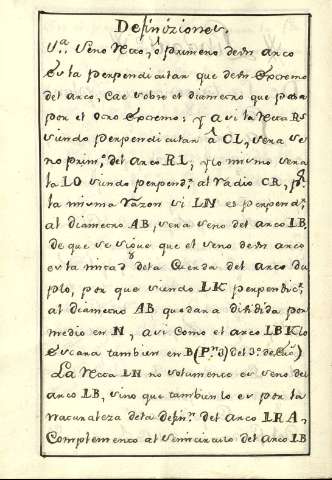 Definiziones.
1.ª Seno Recto, ó primero de un arco
es la perpendicular que de un Extremo
del arco, cae sobre el diametro que pasa
por el otro Extremo; y asi la Recta RS
siendo perpendicular â CL, sera se
no prim.º del arco RL, y lo mismo sera
la LO siendo perpend.r al radio CR, p.r
la misma razon si LN es perpend.r
al diametro AB, sera seno del arco LB,
de que se sigue que el seno de un arco
es la mitad dela Cuerda del arco du
plo, por que siendo LK perpendic.r
al diametro AB quedara dividida por
medio en N, asi como el arco LBK lo
Estara tambien en B (P.n 3) del 3.º de Euc.)
La Recta LN no solamente es seno del
arco LB, sino que tambien lo es por la
naturaleza dela defin.n del arco LRA,
Complemento al semicirculo del arco LB